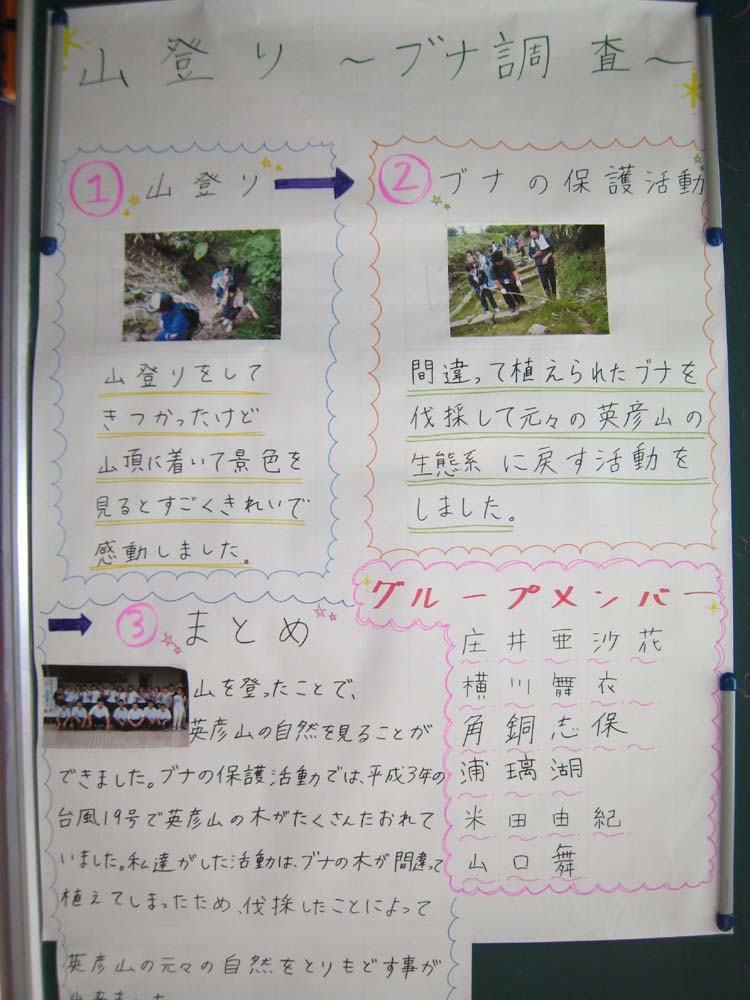 山登り ～ブナ調査～
① 山登り
山登りをして
きつかったけど
山頂に着いて景色を
見るとすごくきれいで
感動しました。
② ブナの保護活動
間違って植えられたブナを
伐採して元々の英彦山の
生態系に戻す活動を
しました。
グループメンバー
庄井亜沙花
横川舞衣
角銅志保
浦璃湖
米田由紀
山口舞
③ まとめ
山を登ったことで、
英彦山の自然を見ることが
できました。ブナの保護活動では、平成3年の
台風19号で英彦山の木がたくさんたおれて
いました。私達がした活動は、ブナの木が間違って
植えてしまったため、伐採したことによって
英彦山の元々の自然をとりもどす事が